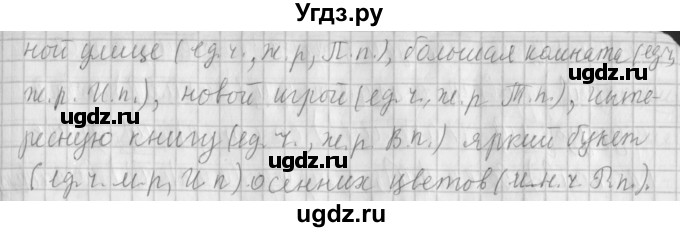 Угдз.ру
ной улице (ед.ч., ж.р, П.п.), большая комната (ед.ч,
ж.р. И.п.), новой игрой (ед.ч., ж.р Т.п.), инте-
ресную книгу (ед.ч., ж.р В.п.) яркий букет
(ед.ч. м.р, И.п) осенних цветов (м.н.ч. Р.п.).
uгдз.ру
uгдз.ру
uгдз.ру
uгдз.ру
uгдз.ру